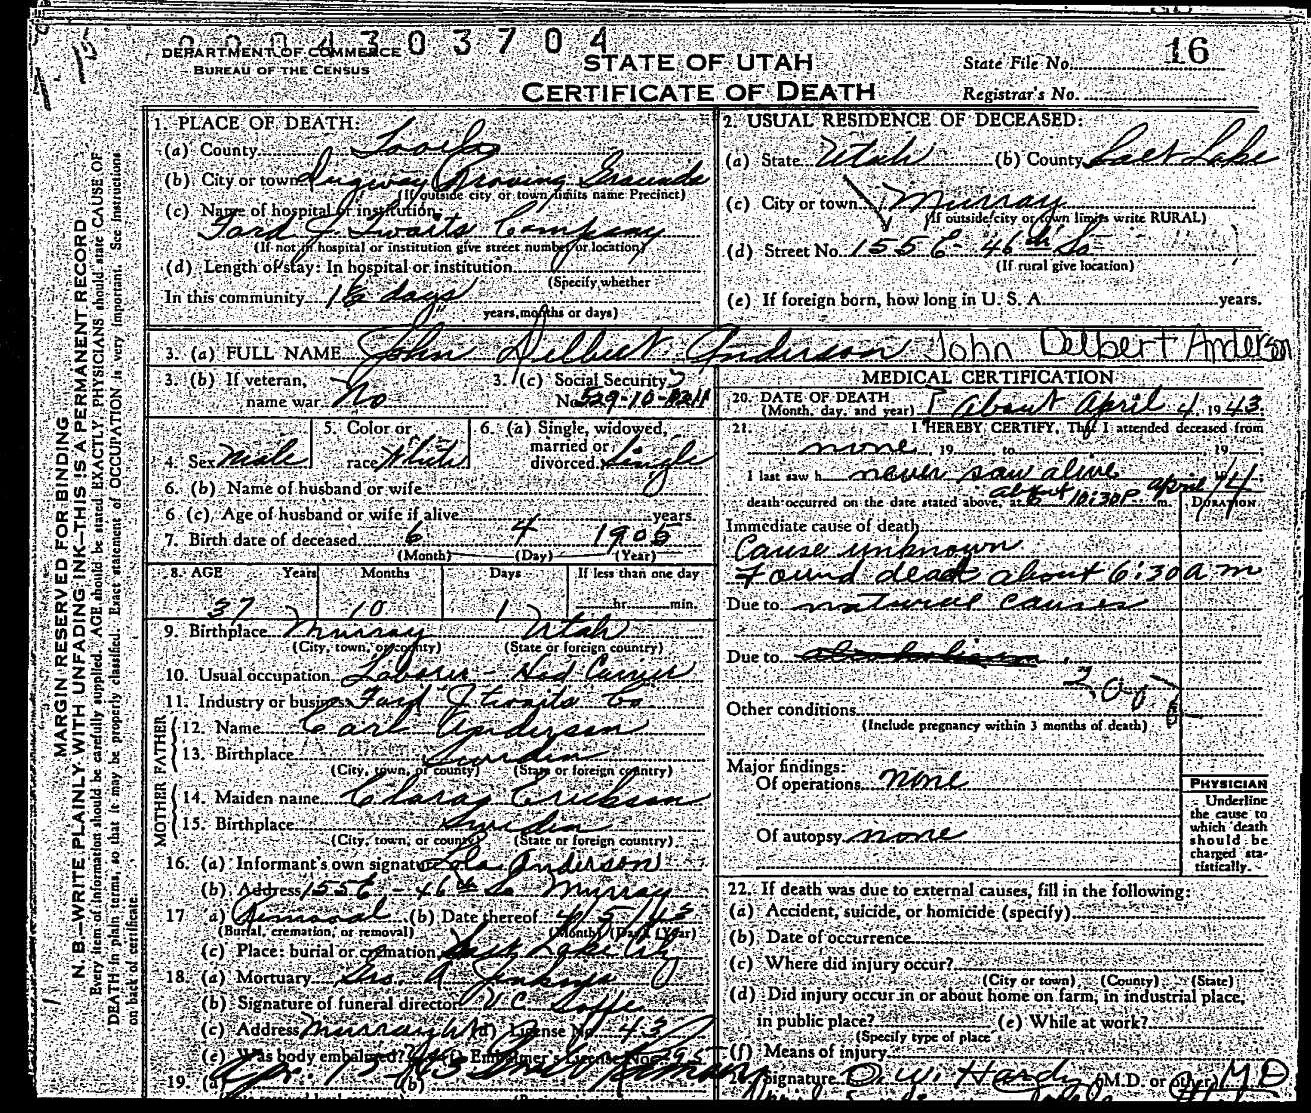 0 0 0 4 3 0 3 7 0 4
DEPARTMENT OF COMMERCE
BUREAU OF THE CENSUS
STATE OF UTAH
CERTIFICATE OF DEATH
State File No. 16
Registrar's No.
MARGIN RESERVED FOR BINDING
N. B.—WRITE PLAINLY WITH UNFADING INK—THIS IS A PERMANENT RECORD
Every item of information should be carefully supplied. AGE should be stated EXACTLY. PHYSICIANS should state CAUSE OF
DEATH in plain terms, so that it may be properly classified. Exact statement of OCCUPATION is very important. See Instructions
on back of certificate.
1. PLACE OF DEATH:
(a) County Tooele
(b) City or town Dugway Proving Grounds
(If outside city or town limits name Precinct)
(c) Name of hospital or institution
Ford J. Twaits Company
(If not in hospital or institution give street number or location)
(d) Length of stay: In hospital or institution
(Specify whether
In this community 1½ days
years, months or days)
2. USUAL RESIDENCE OF DECEASED:
(a) State Utah (b) County Salt Lake
(c) City or town Murray
(If outside city or town limits write RURAL)
(d) Street No. 155 E - 46th So
(If rural give location)
(e) If foreign born, how long in U. S. A. years.
3. (a) FULL NAME John Delbert Anderson John Delbert Anderson
3. (b) If veteran,
name war No
3. (c) Social Security
No. 529-10-
4. Sex Male
5. Color or
race White
6. (a) Single, widowed,
married or
divorced Single
6. (b) Name of husband or wife
6 (c). Age of husband or wife if alive years.
7. Birth date of deceased 6 4 1905
(Month) (Day) (Year)
8. AGE Years Months Days If less than one day
37 10 1 hr. min.
9. Birthplace Murray Utah
(City, town, or county) (State or foreign country)
10. Usual occupation Laborer - Hod Carrier
11. Industry or business Ford J. Twaits Co.
FATHER
12. Name Carl Anderson
13. Birthplace Sweden
(City, town, or county) (State or foreign country)
MOTHER
14. Maiden name Clara Erickson
15. Birthplace Sweden
(City, town, or county) (State or foreign country)
16. (a) Informant's own signature Lola Anderson
(b) Address 155 E - 46th So Murray
17 (a) Removal (b) Date thereof 4/5/43
(Burial, cremation, or removal) (Month) (Day) (Year)
(c) Place: burial or cremation Salt Lake City
18. (a) Mortuary Jenkins
(b) Signature of funeral director V. C.
(c) Address Murray Utah (d) License No. 43
(e) Was body embalmed? (f) Embalmer's License No. 295
19. (a) Apr. 15 - 43 (b)
MEDICAL CERTIFICATION
20. DATE OF DEATH
(Month, day, and year) About April 4, 1943.
21. I HEREBY CERTIFY, That I attended deceased from
none, 19 to 19
I last saw h never saw alive
death occurred on the date stated above, at about 10:30 P m. April 4
DURATION
Immediate cause of death
Cause unknown
Found dead about 6:30 a m
Due to natural causes
Due to
200
Other conditions
(Include pregnancy within 3 months of death)
Major findings:
Of operations none
Of autopsy none
PHYSICIAN
Underline
the cause to
which death
should be
charged sta-
tistically.
22. If death was due to external causes, fill in the following:
(a) Accident, suicide, or homicide (specify)
(b) Date of occurrence
(c) Where did injury occur?
(City or town) (County) (State)
(d) Did injury occur in or about home on farm, in industrial place,
in public place? (e) While at work?
(Specify type of place
(f) Means of injury
Signature O. W. Hardy (M.D. or other) M D